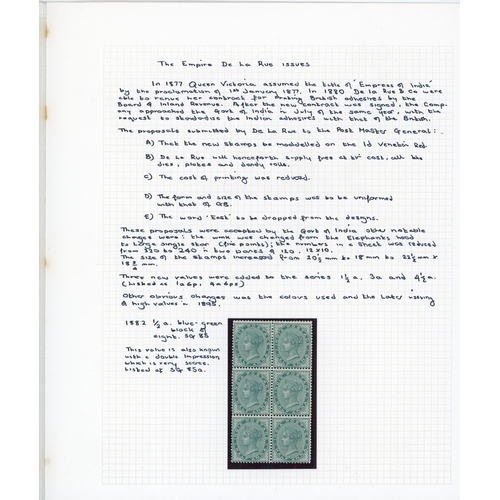 The Empire De La Rue issues
In 1877 Queen Victoria assumed the title of Empress of India
by the proclamation of 1st January 1877. In 1880 De La Rue & Co were
able to renue her contract for Printing British adhesives by the
Board of Inland Revenue. After the new contract was signed, the Comp-
any approached the Govt of India in July of the same year, with the
request to standardise the Indian adhesives with that of the British.
The proposals submitted by De La Rue to the Post Master General:
A) That the new stamps be modelled on the 1d Venetian Red.
B) De La Rue will henceforth supply free of cost, all the
dies, plates and dandy rolls.
C) The cost of printing was reduced.
D) The form and size of the stamps was to be uniformed
with that of GB.
E) The word 'East' to be dropped from the designs.
These proposals were accepted by the Govt of India other notable
changes were: the wmk was changed from the Elephants head
to Large single star (five points); the numbers in a sheet was reduced
from 320 to 240 in two panes of 120. 12 x 10.
The size of the stamps increased from 20½ mm to 18 mm to 22½ mm x
18¾ mm.
Three new values were added to the series 1½ a, 3a and 4½ a.
(Listed as 1a6p, 4a6ps)
Other obvious changes was the colours used and the later issuing
of high values in 1895.
1882 ½ a. blue-green
block of
eight. SG 85
This value is also known
with a double impression
which is very scarce.
Listed at SG 85a.